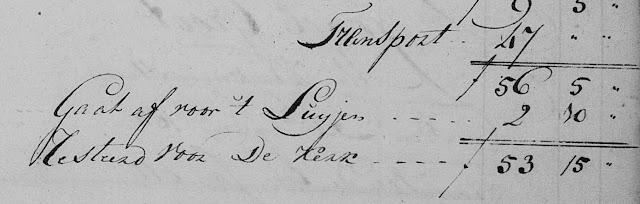 9 5 "
Transport .. 47 " "
f 56 5 "
Gaat af voor 't Luyjen ..... 2 10 "
Resteerd voor De Kerk ..... f 53 15 "